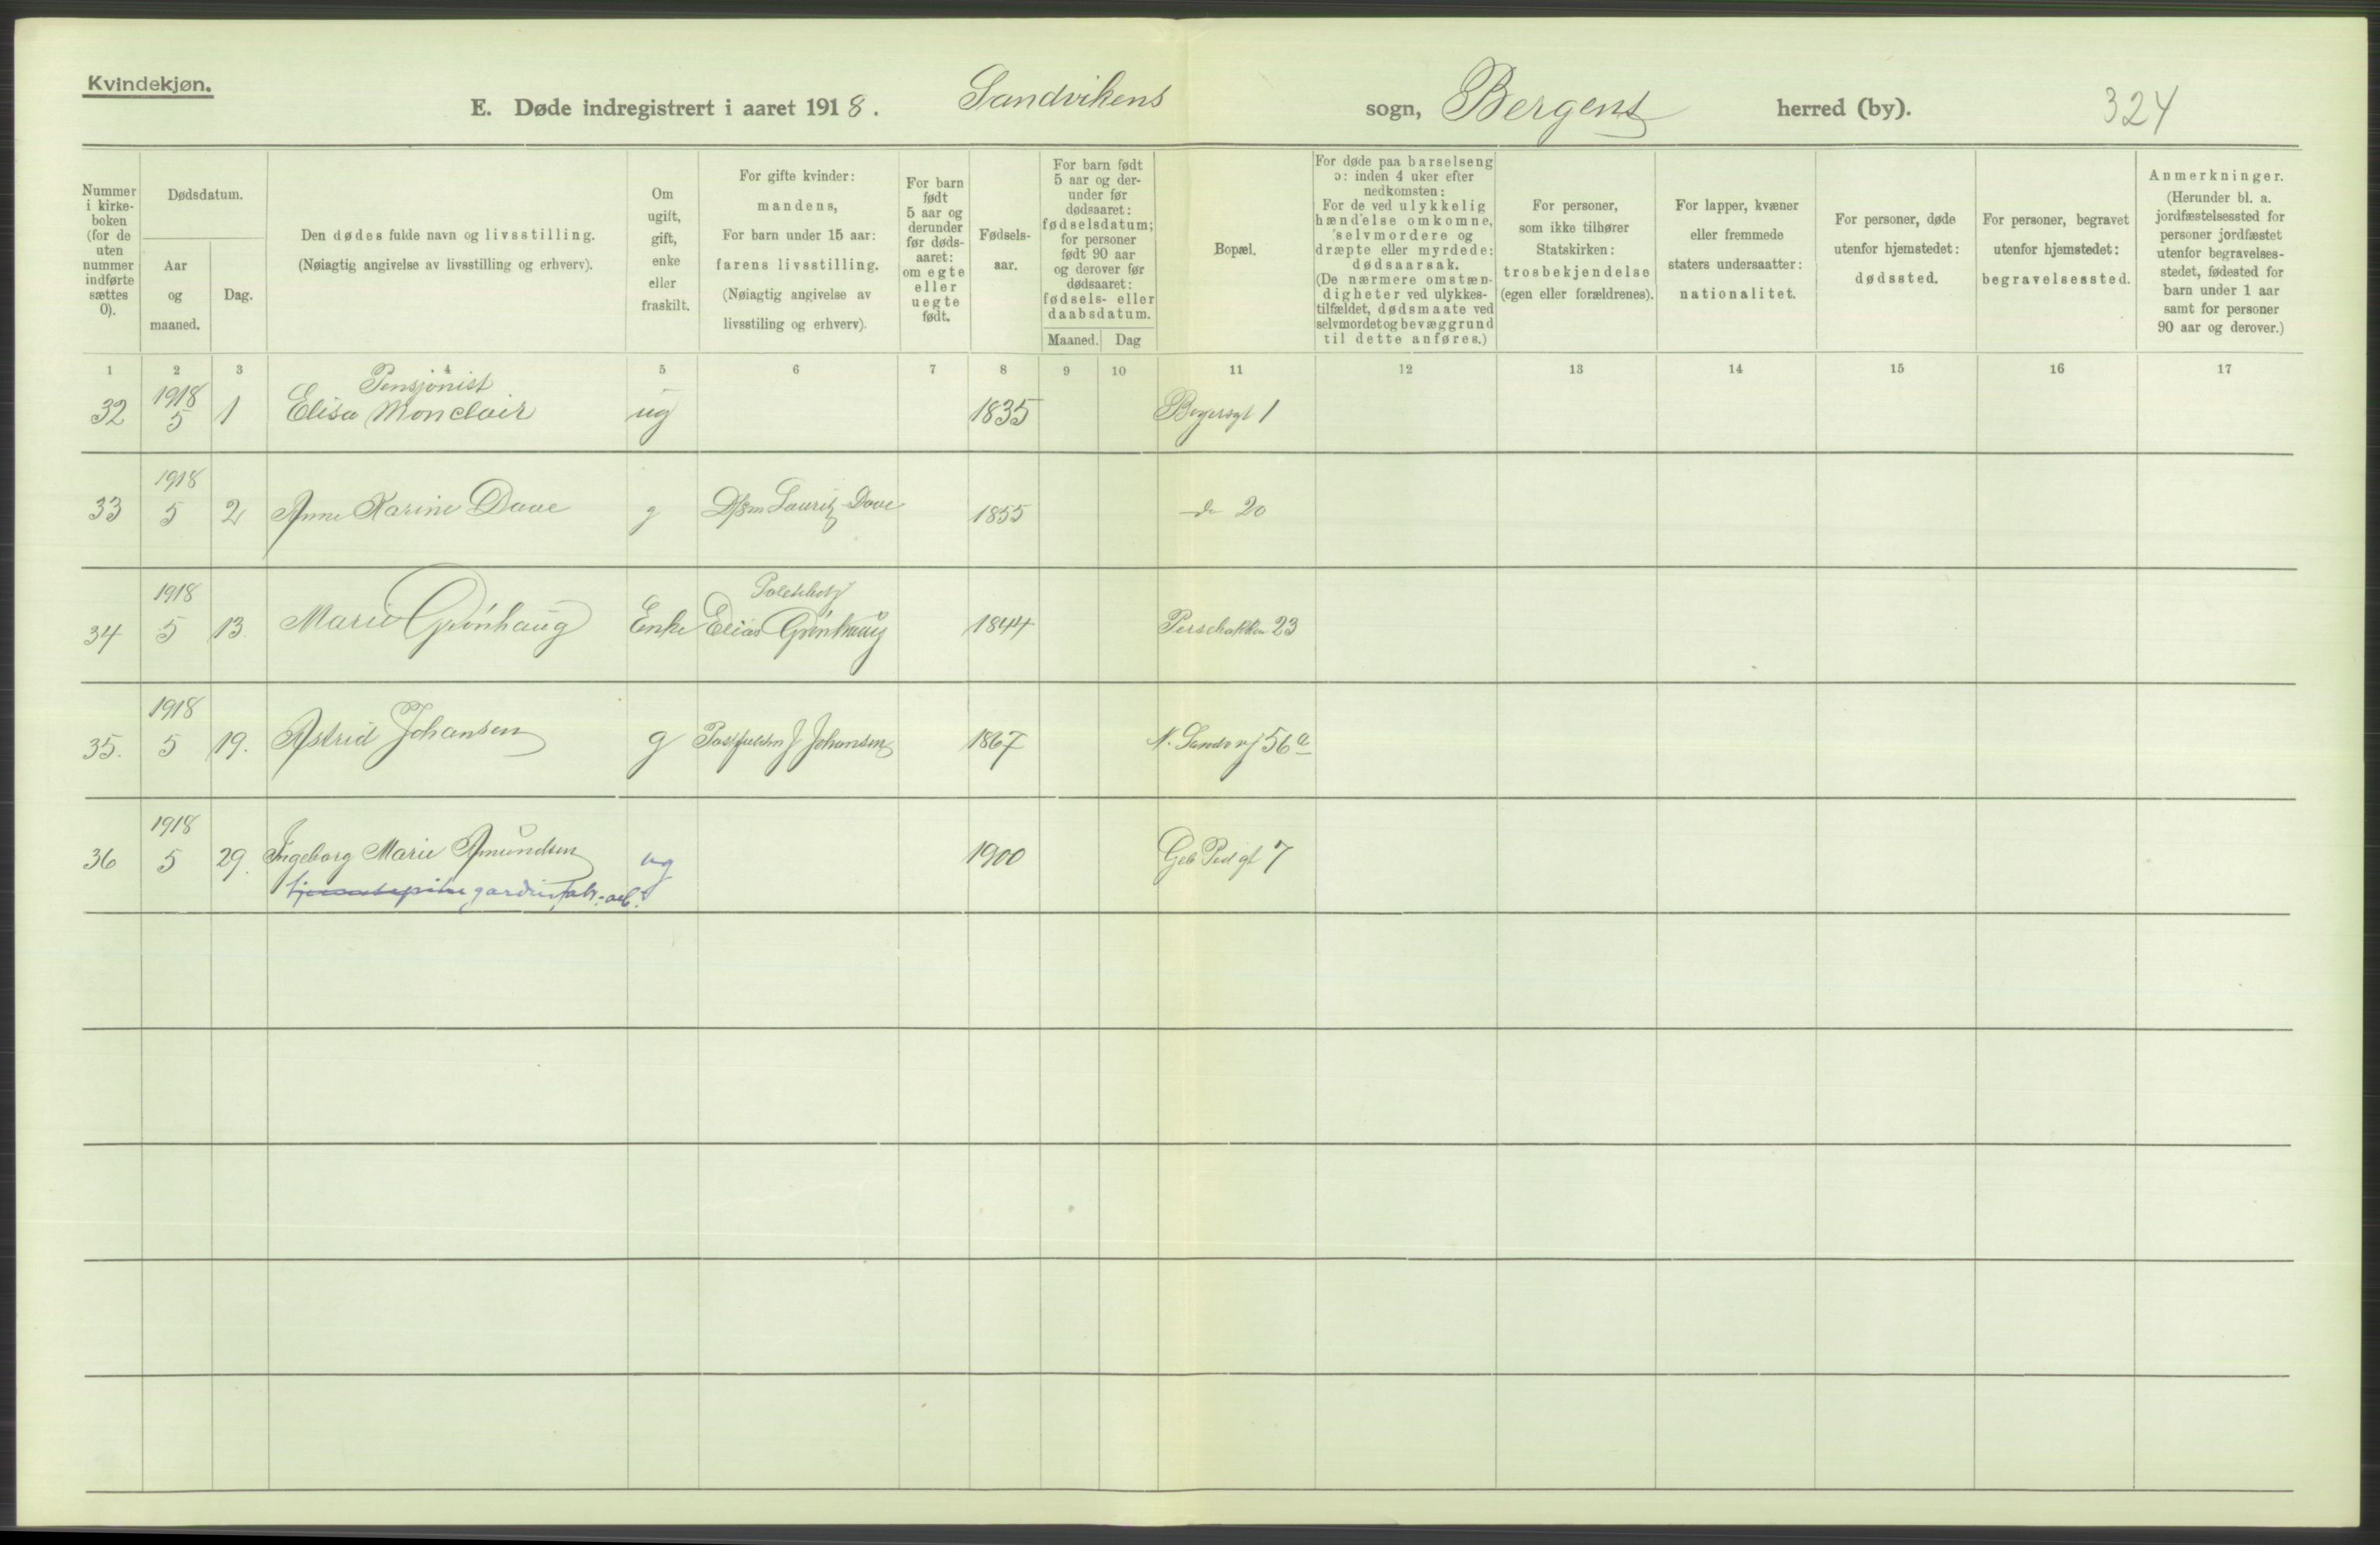 Kvindekjøn.
E. Døde indregistrert i aaret 1918. Sandvikens sogn, Bergens herred (by). 324
Nummer i kirke-boken (for de uten nummer indførte sættes 0).
Dødsdatum.
Aar og maaned.
Dag.
Den dødes fulde navn og livsstilling.
(Nøiagtig angivelse av livsstilling og erhverv).
Om ugift, gift, enke eller fraskilt.
For gifte kvinder: mandens,
For barn under 15 aar: farens livsstilling.
(Nøiagtig angivelse av livsstiling og erhverv).
For barn født 5 aar og derunder før døds-aaret: om egte eller uegte født.
Fødsels-aar.
For barn født 5 aar og der-under før dødsaaret: fødselsdatum; for personer født 90 aar og derover før dødsaaret: fødsels- eller daabsdatum.
Maaned. Dag
Bopæl.
For døde paa barselseng ɔ: inden 4 uker efter nedkomsten:
For de ved ulykkelig hændelse omkomne, selvmordere og dræpte eller myrdede: dødsaarsak.
(De nærmere omstæn-digheter ved ulykkes-tilfældet, dødsmaate ved selvmordet og bevæggrund til dette anføres.)
For personer, som ikke tilhører Statskirken: trosbekjendelse (egen eller forældrenes).
For lapper, kvæner eller fremmede staters undersaatter: nationalitet.
For personer, døde utenfor hjemstedet: dødssted.
For personer, begravet utenfor hjemstedet: begravelsessted.
Anmerkninger.
(Herunder bl. a. jordfæstelsessted for personer jordfæstet utenfor begravelses-stedet, fødested for barn under 1 aar samt for personer 90 aar og derover.)
1 2 3 4 5 6 7 8 9 10 11 12 13 14 15 16 17
1918 Pensjonist
32 5 1 Elisa Monclair ug 1835 1
1918
33 5 2 Anne Karine Daae g Lauritz Daae 1855 do 20
1918
34 5 13. Marie Grönhaug Enke Elias Grönhaug 1844 23
1918
35. 5 19. Astrid Johansen g J Johansen 1867 N. Sandv 56 a
1918
36 5 29. Ingeborg Marie Amundsen ug 1900 Geb Ped gt 7